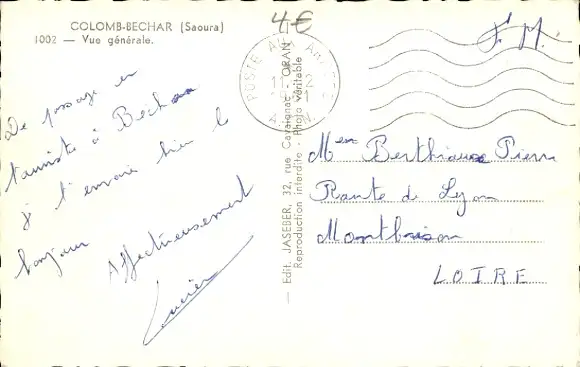 COLOMB-BECHAR (Saoura)
1002 — Vue générale.
4€
F. M.
POSTE AUX ARMÉES
A.F.N.
De passage en
touriste à Bechar
je t'envoie bien le
bonjour
Affectueusement
Lucien
— Edit. JASEBER, 32, rue Cavaignac - ORAN
Reproduction interdite - Photo véritable
Pierre
Route de Lyon
Montbrison
LOIRE